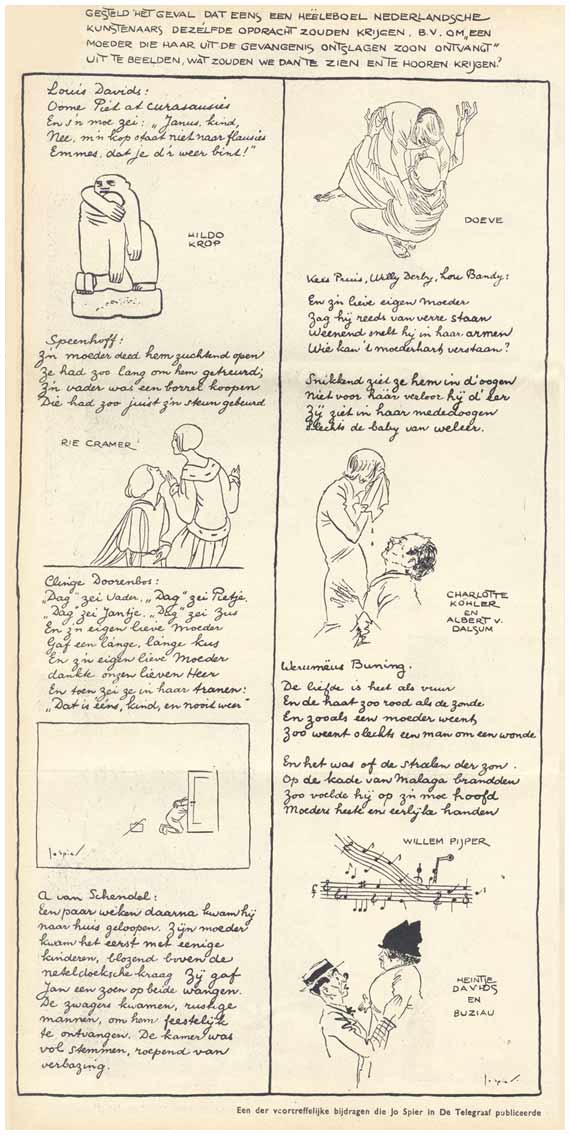 GESTELD HET GEVAL DAT EENS EEN HEELEBOEL NEDERLANDSCHE
KUNSTENAARS DEZELFDE OPDRACHT ZOUDEN KRIJGEN. B.V. OM „EEN
MOEDER DIE HAAR UIT DE GEVANGENIS ONTSLAGEN ZOON ONTVANGT"
UIT TE BEELDEN, WAT ZOUDEN WE DAN TE ZIEN EN TE HOOREN KRIJGEN?
Louis Davids:
Oome Piet at curasausies
En z'n moe zei: „Janus, kind,
Nee, m'n kop staat niet naar flausies
Emmes, dat je d'r weer bint!"
HILDO
KROP
Speenhoff:
Z'n moeder deed hem zuchtend open
Ze had zoo lang om hem getreurd;
Z'n vader was een borrel koopen
Die had zoo juist z'n steun gebeurd
RIE CRAMER
Clinge Doorenbos:
„Dag" zei Vader, „Dag" zei Pietje,
„Dag" zei Jantje, „Dag" zei Zus
En z'n eigen lieve Moeder
Gaf een lánge, lánge kus
En z'n eigen lieve Moeder
dankte onzen lieven Heer
En toen zei ze in haar tranen:
„Dat is ééns, kind, en nooit weer"
Jo Spier
A van Schendel:
Een paar weken daarna kwam hij
naar huis geloopen. Zijn moeder
kwam het eerst met eenige
kinderen, blozend boven de
neteldoeksche kraag Zij gaf
Jan een zoen op beide wangen.
De zwagers kwamen, rustige
mannen, om hem feestelijk
te ontvangen. De kamer was
vol stemmen, roepend van
verbazing.
DOEVE
Kees Pruis, Willy Derby, Lou Bandy:
En z'n lieve eigen moeder
Zag hij reeds van verre staan
Weenend snelt hij in haar armen
Wie kan 't moederhart verstaan?
Snikkend ziet ze hem in d'oogen
Niet voor háár verloor hij d'eer
Zij ziet in haar mededoogen
Slechts de baby van weleer.
CHARLOTTE
KÖHLER
EN
ALBERT V.
DALSUM
Werumeüs Buning.
De liefde is heet als vuur
En de haat zoo rood als de zonde
En zooals een moeder weent,
Zoo weent slechts een man om een wonde
En het was of de stralen der zon.
Op de kade van Malaga brandden
Zoo voelde hij op z'n moe hoofd
Moeders heete en eerlijke handen
WILLEM PIJPER
HEINTJE
DAVIDS
EN
BUZIAU
Jo Spier
Een der voortreffelijke bijdragen die Jo Spier in De Telegraaf publiceerde